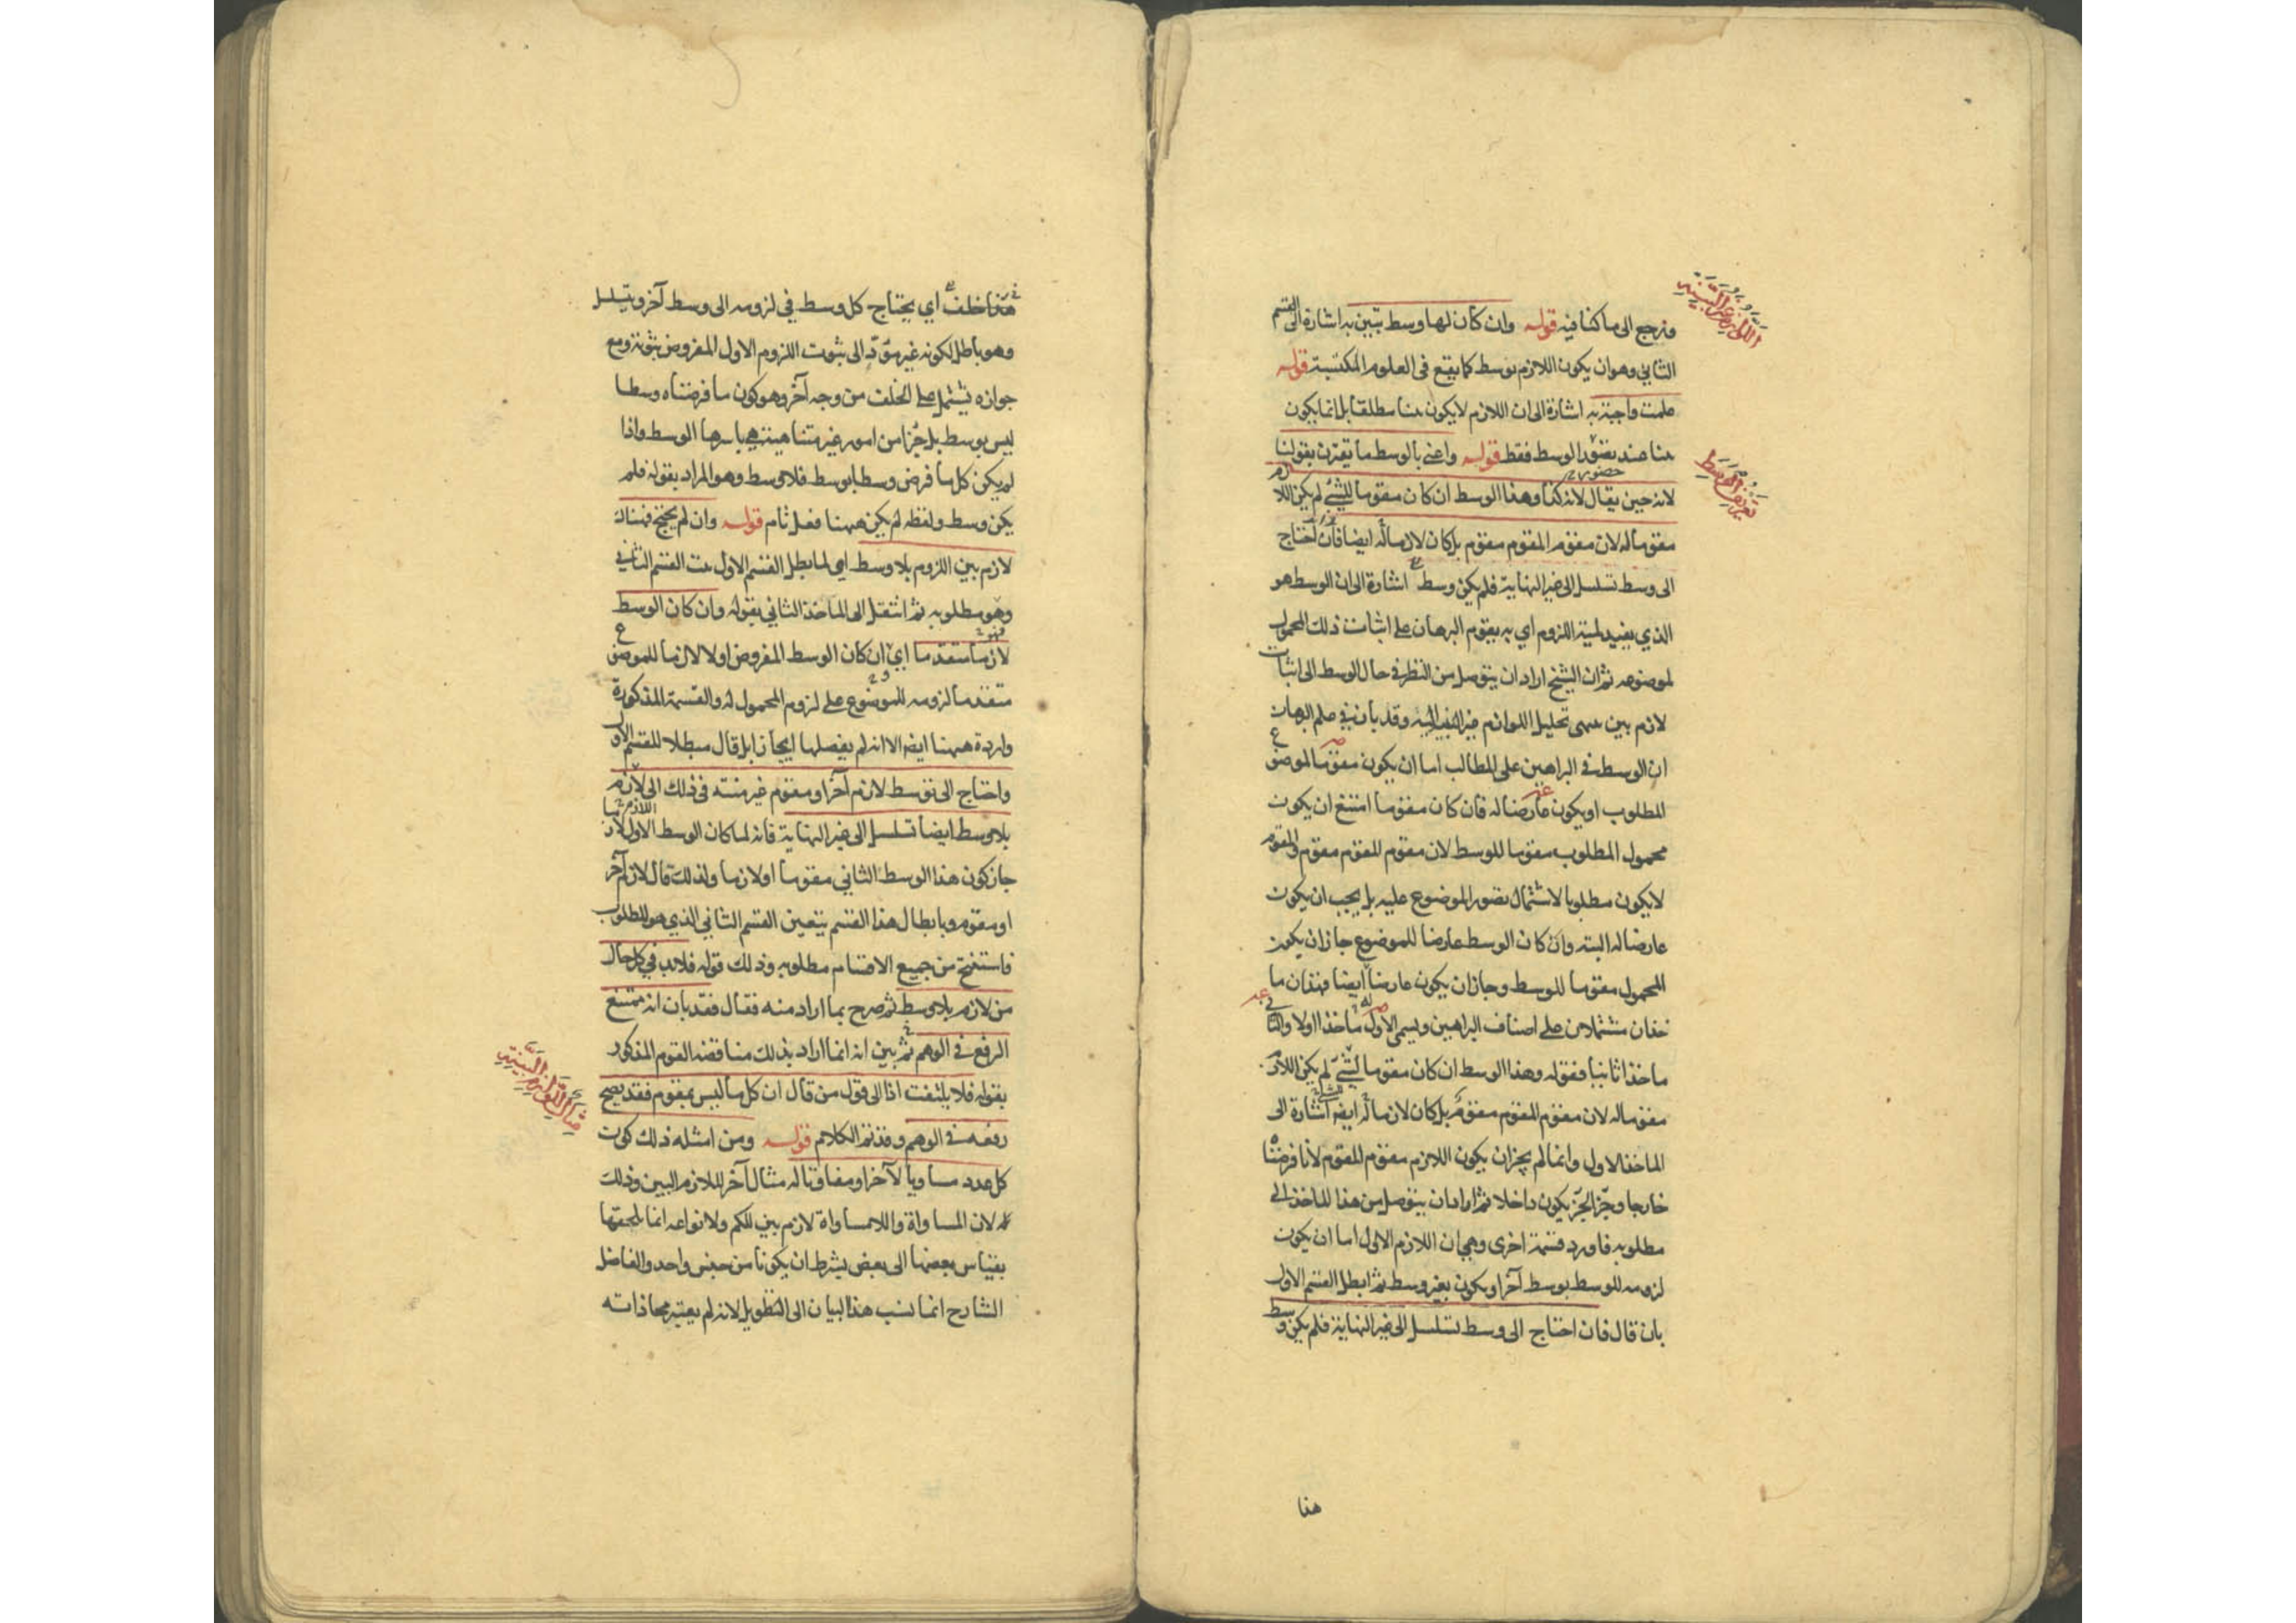 اللوازم الغير البينة
ونرجع الى ما كنا فيه قوله وان كان لها وسط يتبين به اشارة الى القسم
الثاني وهو ان يكون اللازم بوسط كما يقع في العلوم المكتسبة قوله
علمت واجبة به اشارة الى ان اللازم لا يكون بينا مطلقا بل انما يكون
بينا عند حضور الوسط فقط قوله واعني بالوسط ما يقترن بقولنا
تعريف الوسط
لانه حين يقال لانه كذا وهذا الوسط ان كان مقوما للشئ لم يكن اللازم
مقوما له لان مقوم المقوم مقوم بل كان لازما له ايضا فان احتاج
الى وسط تسلسل الى غير النهاية فلم يكن وسط اشارة الى ان الوسط هو
الذي يفيد لمية اللزوم اي به يقوم البرهان على اثبات ذلك المحمول
لموضوعه ثم ان الشيخ اراد ان يتوصل من النظر في حال الوسط الى اثبات
لازم بين تحليل اللوازم غير البينة اليه وقد بان في علم البرهان
ان الوسط في البراهين على المطالب اما ان يكون مقوما لموضوع
المطلوب او يكون عارضا له فان كان مقوما امتنع ان يكون
محمول المطلوب مقوما للوسط لان مقوم المقوم مقوم والمقوم
لا يكون مطلوبا لاشتمال تصور الموضوع عليه بل يجب ان يكون
عارضا له البته وان كان الوسط عارضا للموضوع جاز ان يكون
المحمول مقوما للوسط وجاز ان يكون عارضا ايضا فهذان ما
خذان مشتملان على اصناف البراهين ويسمى الاول ماخذا اولا والثاني
ماخذا ثانيا فقوله وهذا الوسط ان كان مقوما لشئ لم يكن اللازم
مقوما له لان مقوم المقوم مقوم بل كان لازما له ايضا اشارة الى
الماخذ الاول وانما لم يجز ان يكون اللازم مقوم المقوم لانا فرضناه
خارجا وجزء الجزء يكون داخلا ثم اراد ان يتوصل من هذا الماخذ الى
مطلوبه فاورد قسمة اخرى وهي ان اللازم الاول اما ان يكون
لزومه للوسط بوسط آخر او يكون بغير وسط ثم ابطل القسم الاول
بان قال فان احتاج الى وسط تسلسل الى غير النهاية فلم يكن وسط
هذا
هذا خلف اي يحتاج كل وسط في لزومه الى وسط آخر ويتسلسل
وهو باطل لكونه غير مؤد الى ثبوت اللزوم الاول المفروض ثبوته ومع
جوازه يشتمل على الخلف من وجه آخر وهو كون ما فرضناه وسطا
ليس بوسط بل جزءا من امور غير متناهية هي باسرها الوسط واذا
لم يكن كل ما فرض وسطا بوسط فلا وسط وهو المراد بقوله فلم
يكن وسط ولفظه لم يكن ههنا فعل تام قوله وان لم يحتج فهناك
لازم بين اللزوم بلا وسط اي لما بطل القسم الاول ثبت القسم الثاني
وهو مطلوبه ثم انتقل الى الماخذ الثاني بقوله وان كان الوسط
لازما متقدما اي ان كان الوسط المفروض اولا لازما للموضوع
متقدما لزومه للموضوع على لزوم المحمول له والقسمة المذكورة
واردة ههنا ايضا الا انه لم يفصلها ايجازا بل قال مبطلا للقسم الاول
واحتاج الى توسط لازم آخر او مقوم غير منته في ذلك الى لازم
بلا وسط ايضا تسلسل الى غير النهاية فانه لما كان الوسط الاول لازما
جاز كون هذا الوسط الثاني مقوما او لازما ولذلك قال لازم آخر
او مقوم وبابطال هذا القسم يتعين القسم الثاني الذي هو المطلوب
فاستنتج من جميع الاقسام مطلوبه وذلك قوله فلابد في كل حال
من لازم بلا وسط ثم صرح بما اراد منه فقال فقد بان انه ممتنع
الرفع في الوهم ثم بين انه انما اراد بذلك مناقضة القوم المذكور
بقوله فلا يلتفت اذا الى قول من قال ان كل ما ليس بمقوم فقد يصح
رفعه في الوهم وقد تم الكلام قوله ومن امثلة ذلك كون
كل عدد مساويا لآخر او مفاوتا له مثال آخر للازم البين وذلك
لان المساواة واللامساواة لازم بين للكم ولانواعه انما يلحقها
بقياس بعضها الى بعض بشرط ان يكونا من جنس واحد والفاضل
الشارح انما نسب هذا البيان الى التطويل لانه لم يعتبر محاذاته